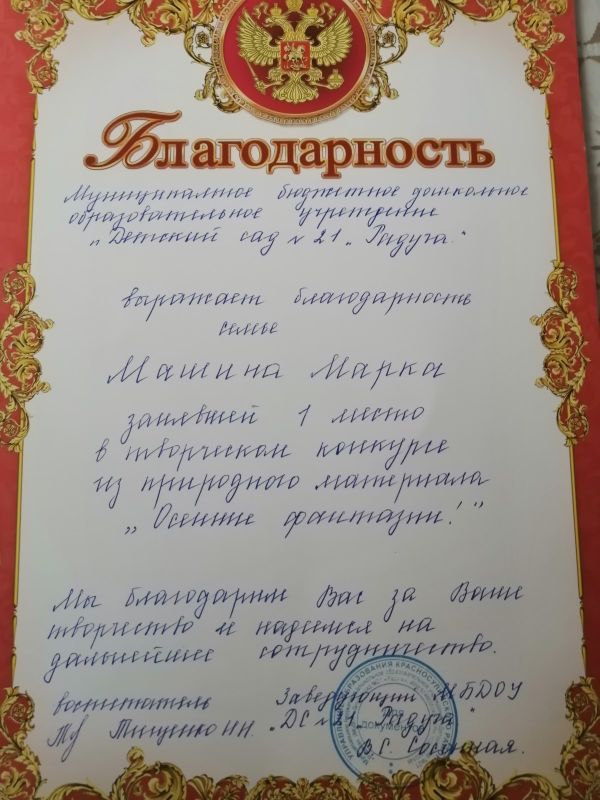 Благодарность
Муниципальное бюджетное дошкольное
образовательное учреждение
„Детский сад №21 „Радуга."
выражает благодарность
семье
Машина Марка
занявшей 1 место
в творческом конкурсе
из природного материала
„Осенние фантазии!"
Мы благодарим Вас за Ваше
творчество и надеемся на
дальнейшее сотрудничество.
воспитатель Заведующий МБДОУ
Тищенко Н.Н. „ДС №21 „Радуга"
В.С. Сосипная.
Для
документов